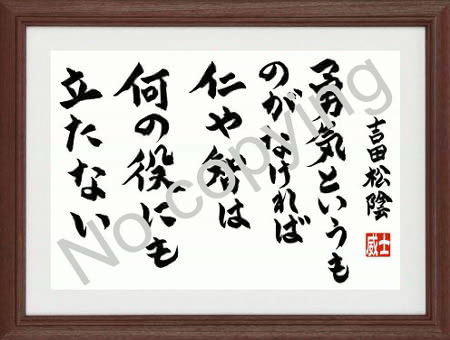 吉田松陰
勇気というも
のがなければ
仁や智は
何の役にも
立たない
威士
No copying